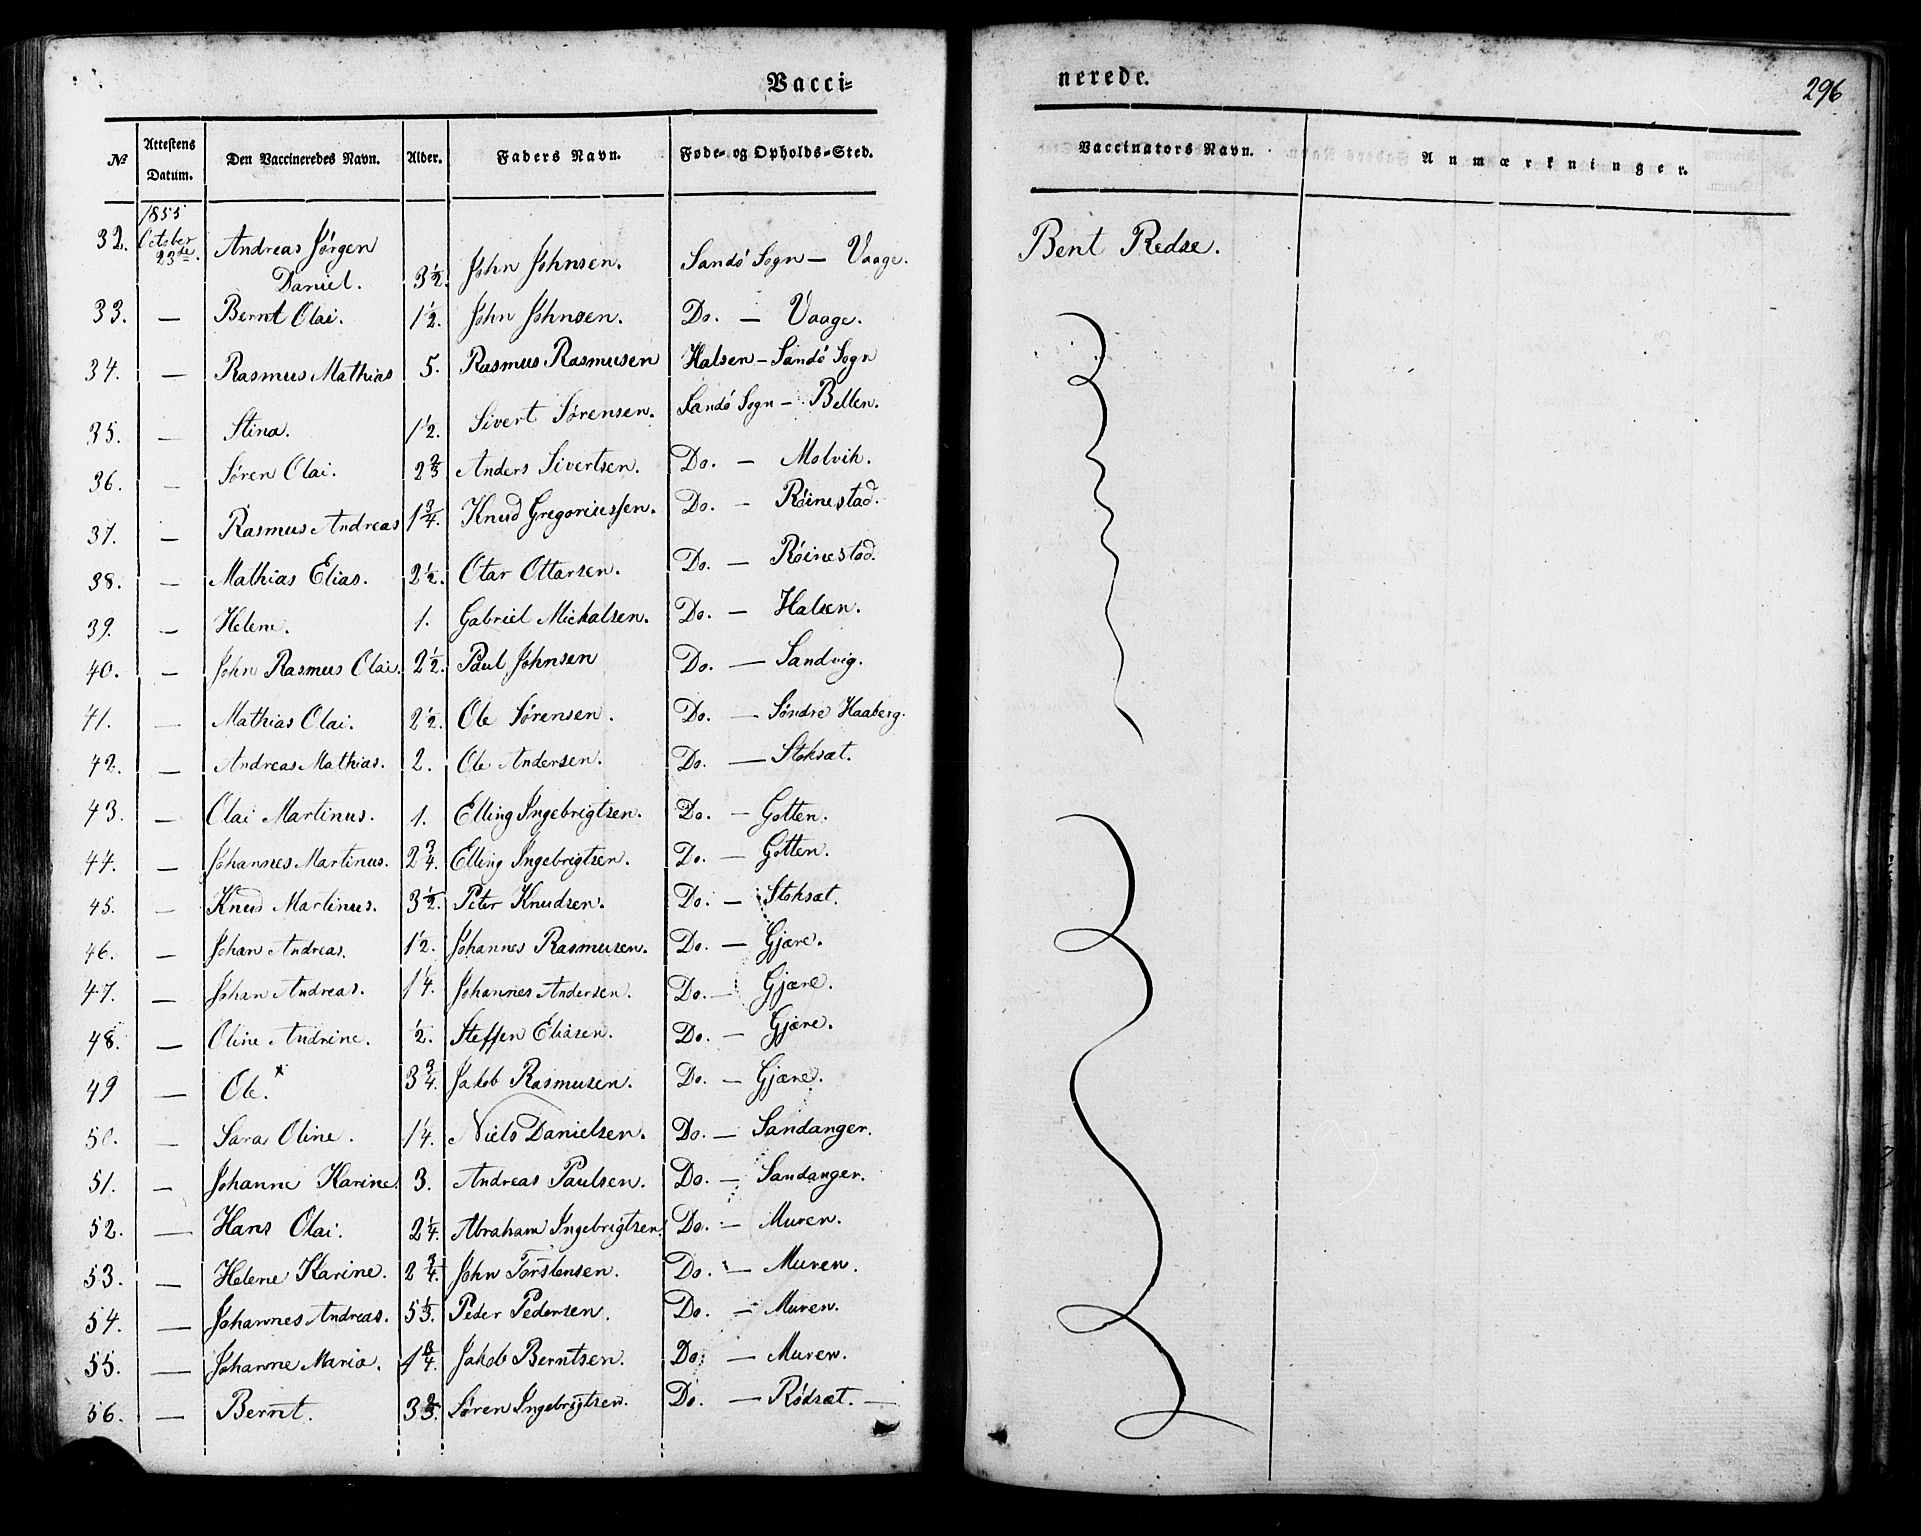 Vacci=
nerede.
296
№ Attestens Datum. Den Vaccineredes Navn. Alder. Faders Navn. Føde- og Opholds-Sted. Vaccinators Navn. Anmærkninger.
1855
32. October 23de. Andreas Jörgen Daniel. 3½. John Johnsen. Sandö Sogn — Vaage. Bent Redse.
33. — Bernt Olai. 1½. John Johnsen. Do. — Vaage.
34. — Rasmus Mathias 5. Rasmus Rasmusen Halsen — Sandö Sogn
35. — Stina. 1½. Sivert Sörensen. Sandö Sogn — Bellen.
36. — Sören Olai. 2⅔ Anders Sivertsen. Do. — Molvik.
37. — Rasmus Andreas 1¾. Knud Gregoriussen. Do. — Röinestad.
38. — Mathias Elias. 2½. Otar Ottarsen. Do. — Röinestad.
39. — Helene. 1. Gabriel Mickalsen. Do. — Halsen.
40. — John Rasmus Olai. 2½. Paul Johnsen Do. — Sandvig.
41. — Mathias Olai. 2½. Ole Sörensen. Do. — Söndre Haaberg.
42. — Andreas Mathias. 2. Ole Andersen. Do. — Stoksæt.
43. — Olai Martinus. 1. Elling Ingebrigtsen. Do. — Gotten.
44. — Johannes Martinus. 2¾. Elling Ingebrigtsen. Do. — Gotten.
45. — Knud Martinus. 3½. Peter Knudsen. Do. — Stoksæt.
46. — Johan Andreas. 1½. Johannes Rasmusen. Do. — Gjære.
47. — Johan Andreas. 1¼. Johannes Andersen. Do. — Gjære.
48. — Oline Andrine. ½. Steffen Eliasen. Do. — Gjære.
49 — Ole.× 3¾. Jakob Rasmusen. Do. — Gjære.
50. — Sara Oline. 1¼. Niels Danielsen. Do. — Sandanger.
51. — Johanne Karine. 3. Andreas Paulsen. Do. — Sandanger.
52. — Hans Olai. 2¼. Abraham Ingebrigtsen. Do. — Muren.
53. — Helene Karine. 2¾. John Torstensen. Do. — Muren.
54. — Johannes Andreas. 5⅓. Peder Pedersen. Do. — Muren.
55. — Johanne Maria. 1¾. Jakob Berntsen. Do. — Muren.
56. — Bernt. 3⅔. Sören Ingebrigtsen. Do. — Rödsæt. —